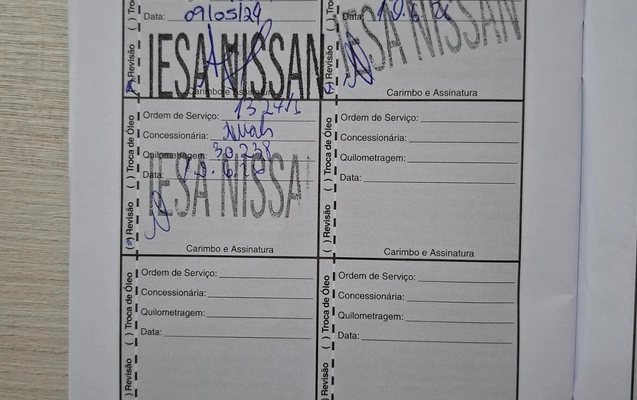 Data: 09/05/24
IESA NISSAN
Carimbo e Assinatura
( ) Revisão ( ) Troc
Data:
IESA NISSAN
Carimbo e Assinatura
( ) Revisão
Ordem de Serviço:
Concessionária:
Quilometragem: 30.238
Data:
IESA NISSAN
Carimbo e Assinatura
( ) Revisão ( ) Troca de Óleo
Ordem de Serviço:
Concessionária:
Quilometragem:
Data:
Carimbo e Assinatura
( ) Revisão ( ) Troca de Óleo
Ordem de Serviço:
Concessionária:
Quilometragem:
Data:
) Revisão ( ) Troca de Óleo
Ordem de Serviço:
Concessionária:
Quilometragem:
Data:
) Revisão ( ) Troca de Óleo